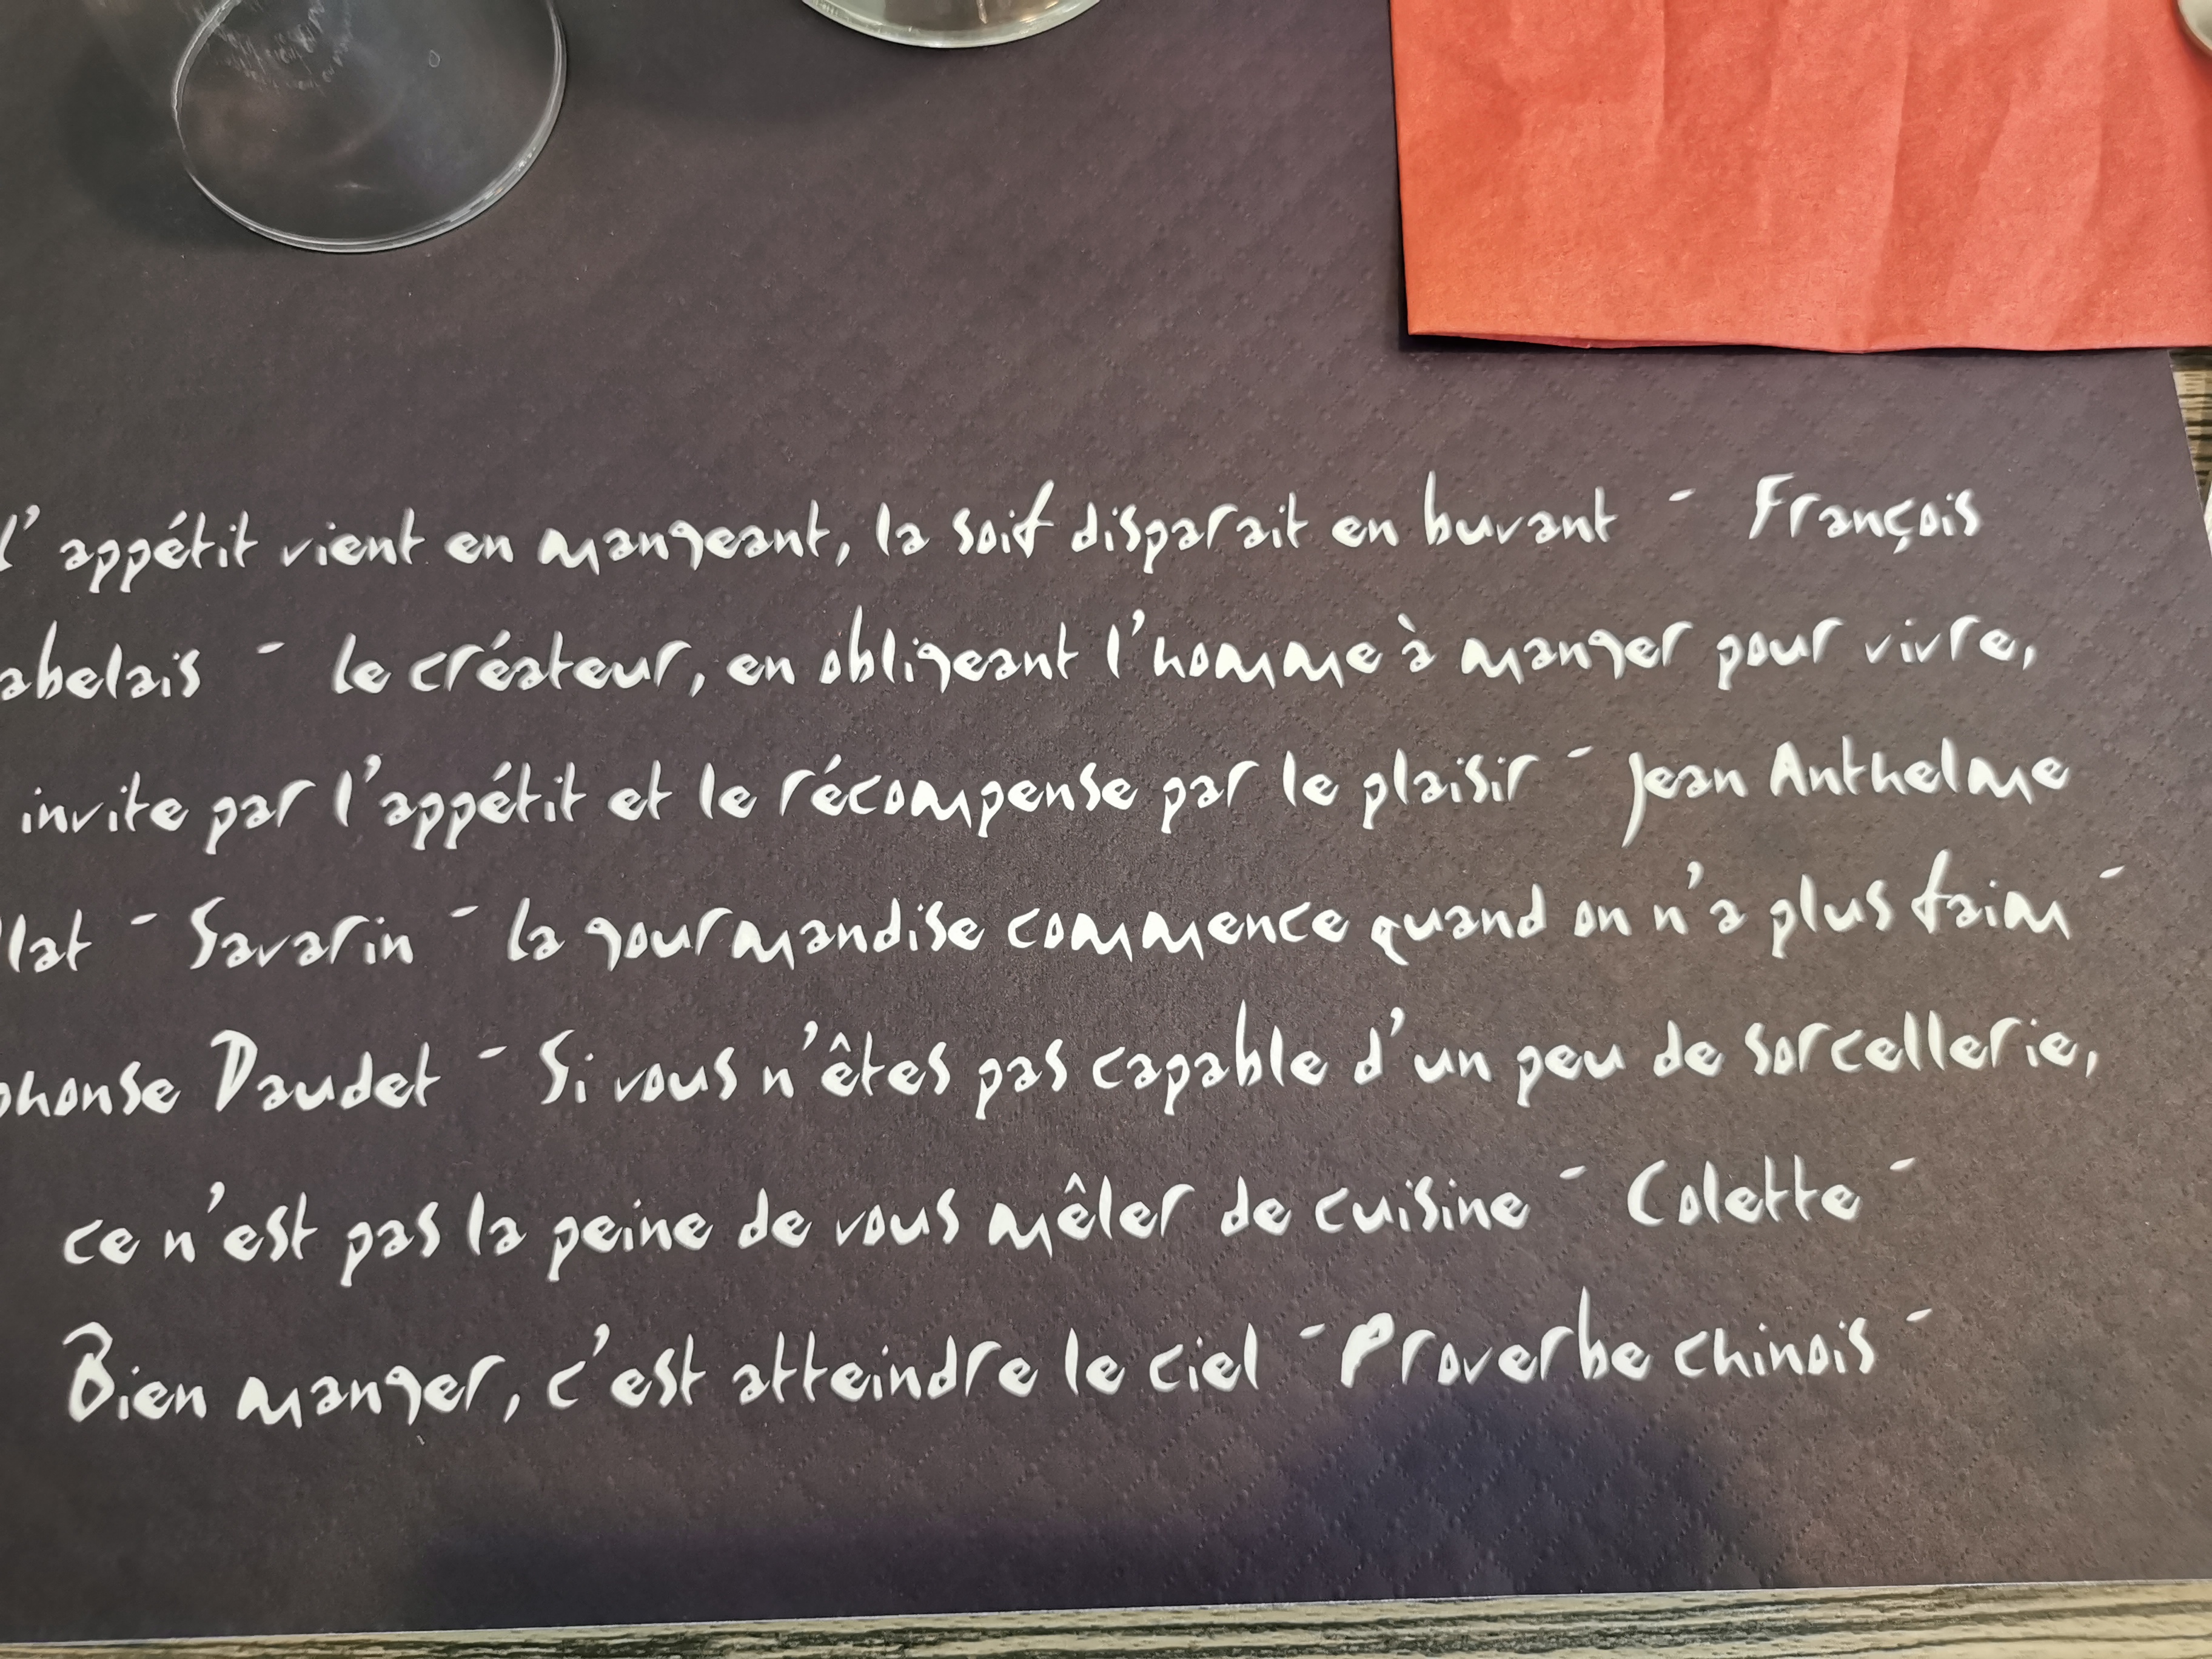 l' appétit vient en mangeant, la soif disparait en buvant - François
abelais - le créateur, en obligeant l'homme à manger pour vivre,
invite par l'appétit et le récompense par le plaisir - Jean Anthelme
llat - Savarin - la gourmandise commence quand on n'a plus faim -
phonse Daudet - Si vous n'êtes pas capable d'un peu de sorcellerie,
ce n'est pas la peine de vous mêler de cuisine - Colette -
Bien manger, c'est atteindre le ciel - Proverbe chinois -